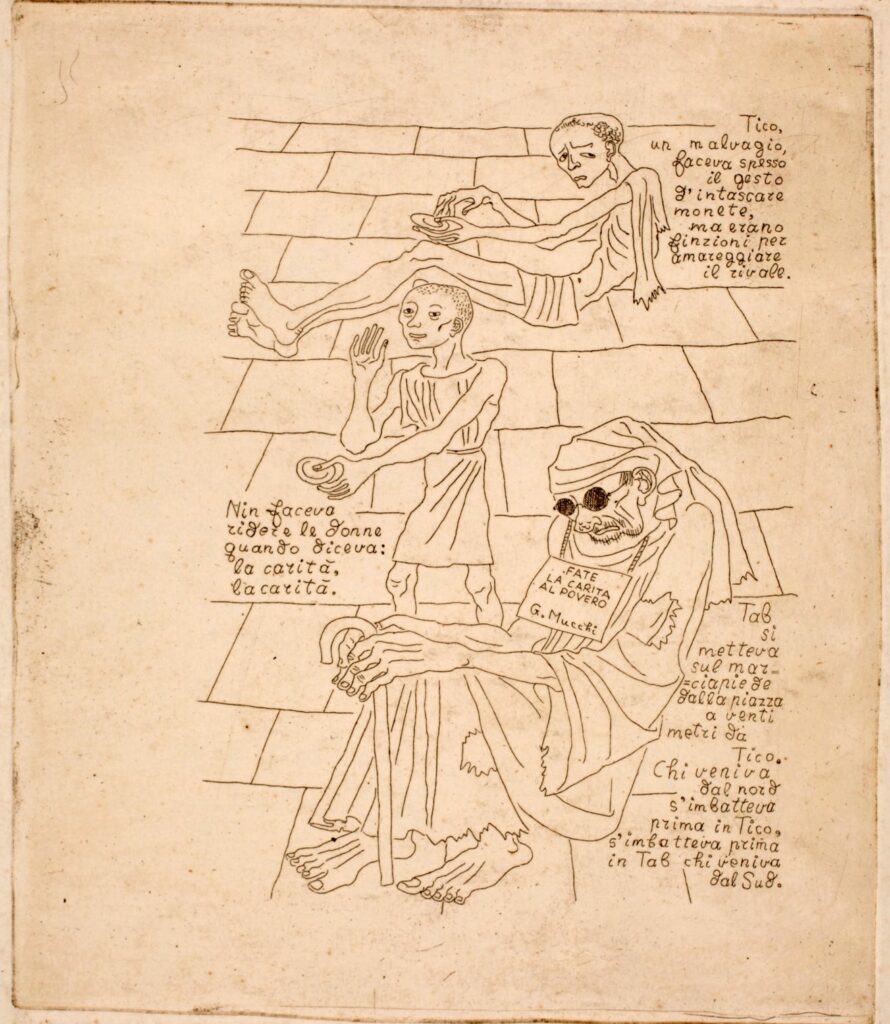 Tico,
un malvagio,
faceva spesso
il gesto
d'intascare
monete,
ma erano
finzioni per
amareggiare
il rivale.
Nin faceva
ridere le donne
quando diceva:
la carità,
la carità.
FATE
LA CARITA
AL POVERO
G. Mucchi
Tab
si
metteva
sul mar=
=ciapiede
dalla piazza
a venti
metri da
Tico.
Chi veniva
dal nord
s'imbatteva
prima in Tico,
s'imbatteva prima
in Tab chi veniva
dal Sud.